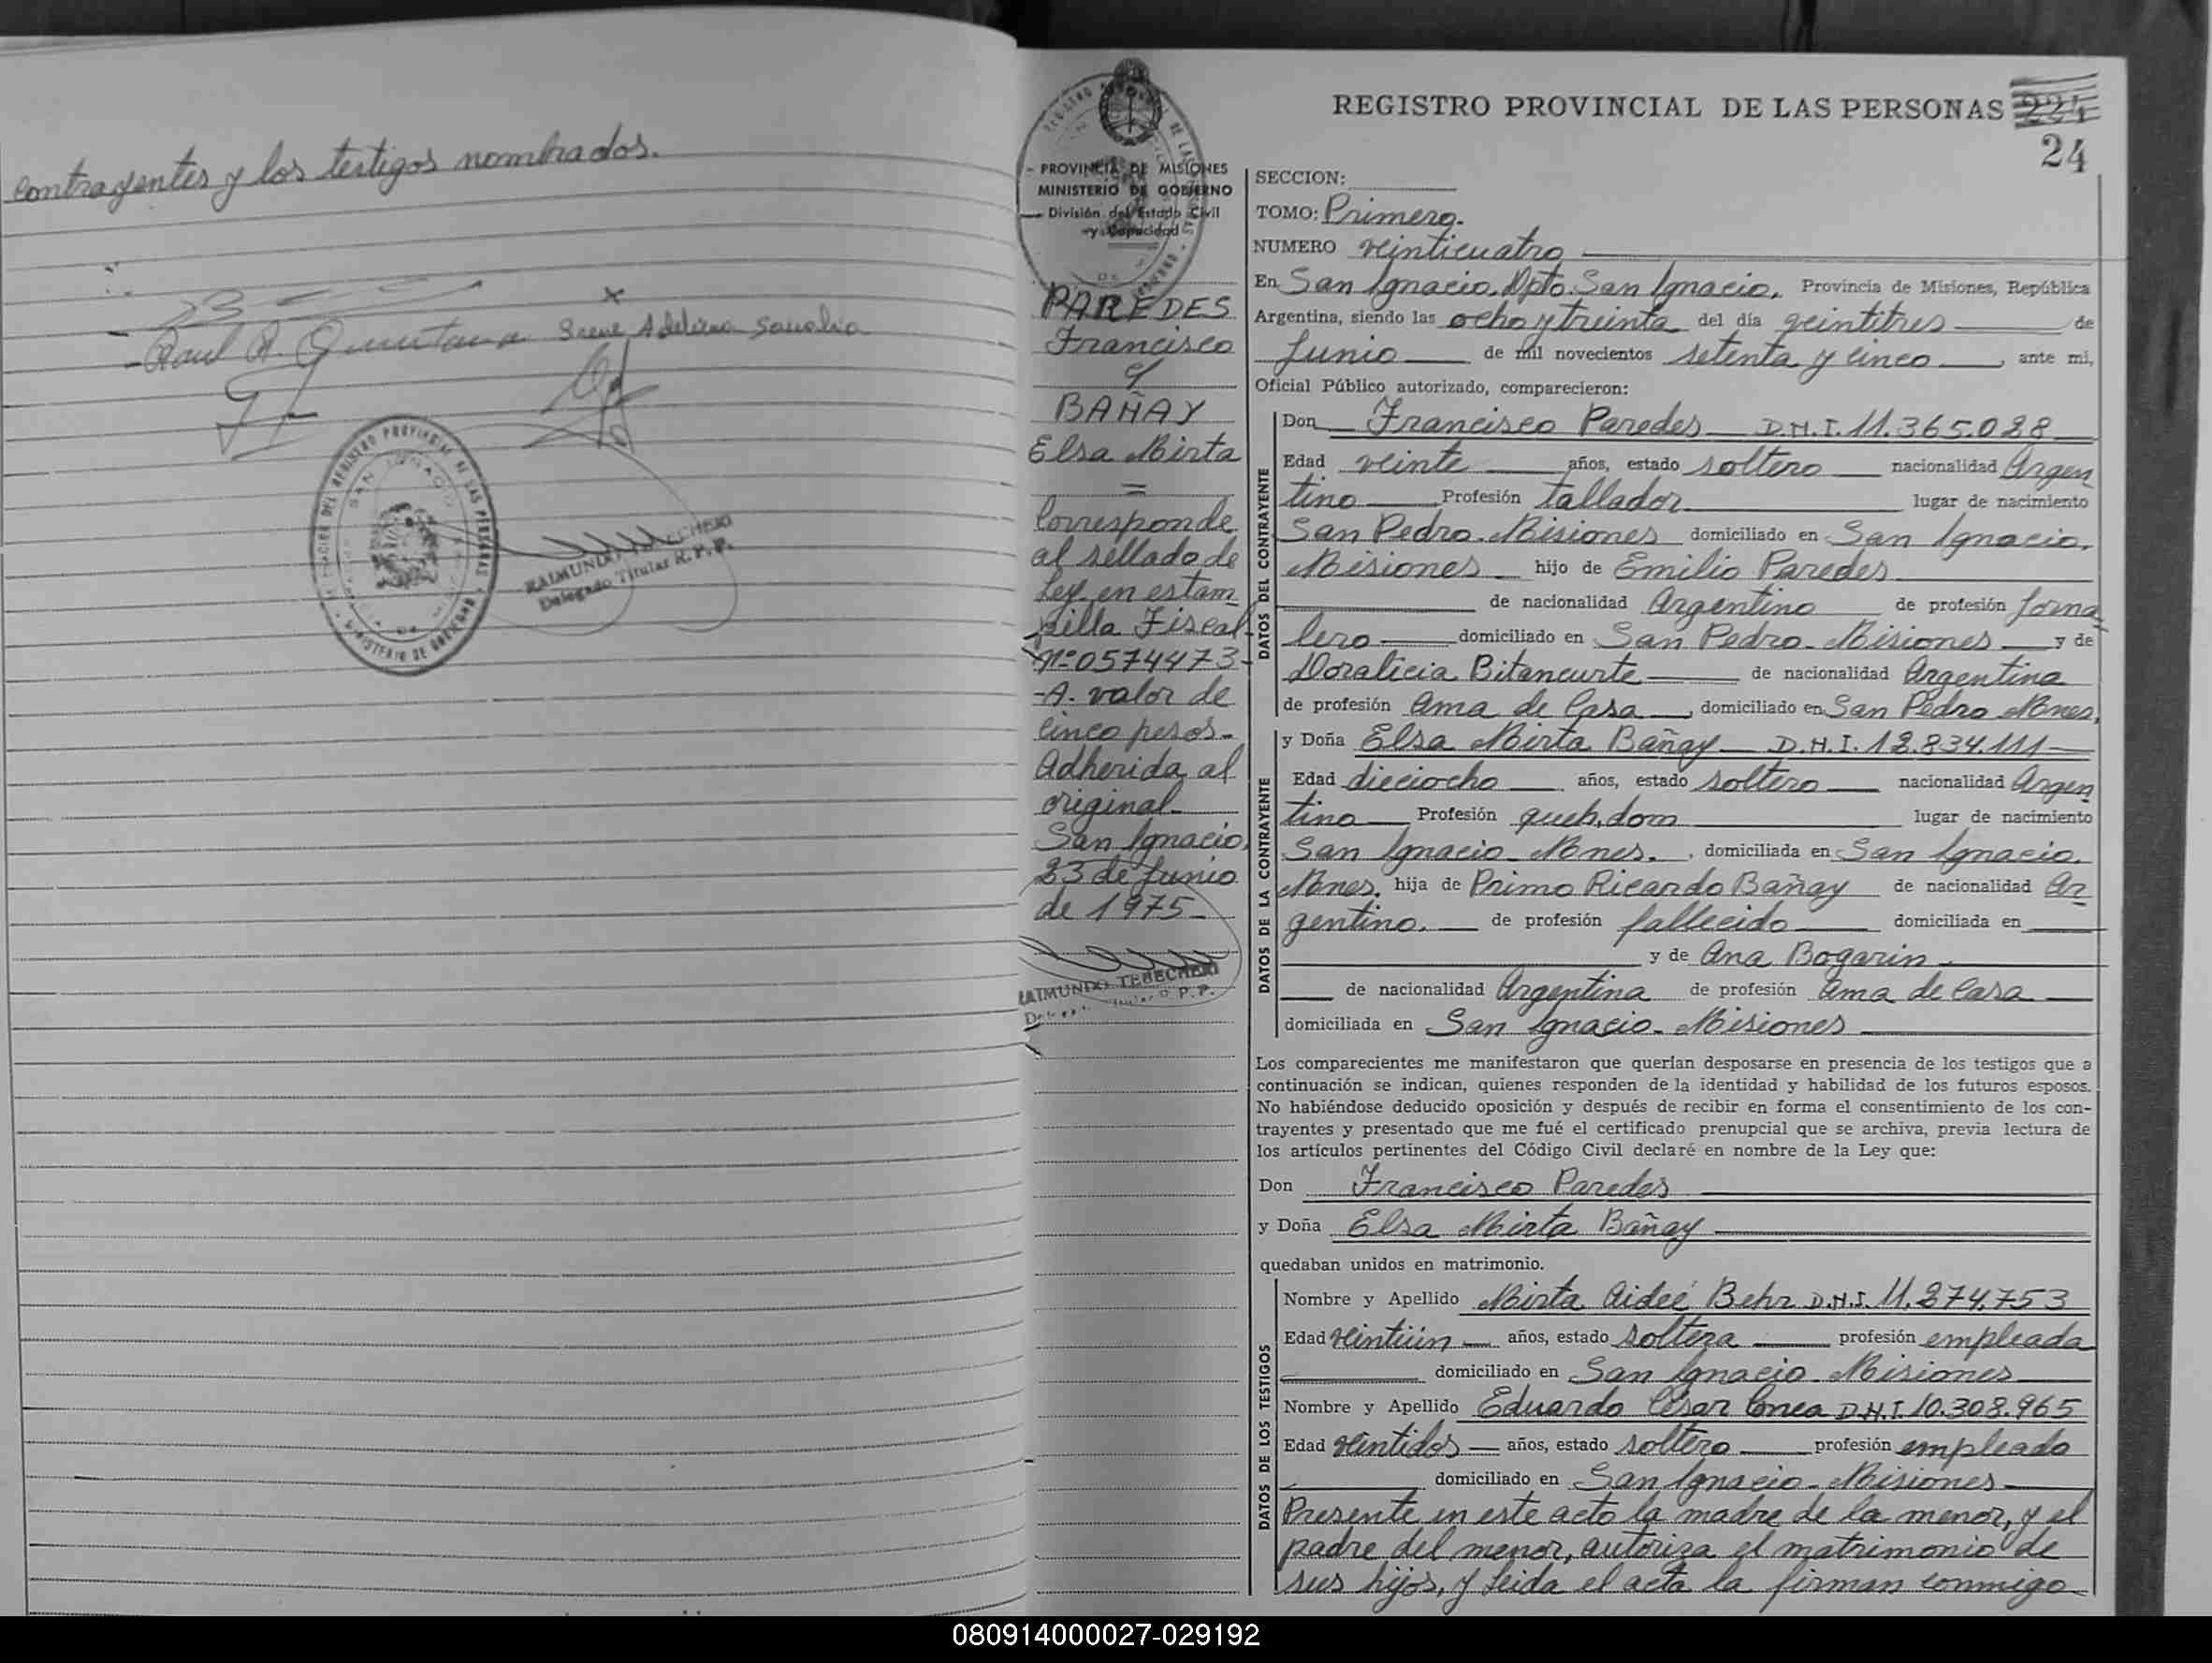 contrayentes y los testigos nombrados.
Raul A. Quintana
Irene Adelina
REGISTRO PROVINCIAL DE LAS PERSONAS
RAIMUNDO TEBECHERI
Delegado Titular R.P.P.
PROVINCIA DE MISIONES
MINISTERIO DE GOBIERNO
División del Estado Civil
y Capacidad
PAREDES
Francisco
y
BAÑAY
Elsa Mirta
=
Corresponde
al sellado de
Ley en estam
pilla Fiscal
Nº 0574473-
-A. valor de
cinco pesos-
Adherida al
original-
San Ignacio,
23 de Junio
de 1975-
RAIMUNDO TEBECHERI
REGISTRO PROVINCIAL DE LAS PERSONAS 224
24
SECCION:
TOMO: Primero.
NUMERO veinticuatro
En San Ignacio, Dpto. San Ignacio, Provincia de Misiones, República
Argentina, siendo las ocho y treinta del día veintitres de
Junio de mil novecientos setenta y cinco, ante mi,
Oficial Público autorizado, comparecieron:
DATOS DEL CONTRAYENTE
Don Francisco Paredes D.N.I. 11.365.028
Edad veinte años, estado soltero nacionalidad Argen
tino Profesión tallador lugar de nacimiento
San Pedro. Misiones domiciliado en San Ignacio.
Misiones hijo de Emilio Paredes
de nacionalidad Argentino de profesión Jorna
lero domiciliado en San Pedro. Misiones y de
Doralicia Bitancurte de nacionalidad Argentina
de profesión Ama de Casa, domiciliado en San Pedro Mnes,
DATOS DE LA CONTRAYENTE
y Doña Elsa Mirta Bañay D.N.I. 12.834.111
Edad dieciocho años, estado soltero nacionalidad Argen
tina Profesión queh. dom lugar de nacimiento
San Ignacio. Mnes., domiciliada en San Ignacio.
Mnes. hija de Primo Ricardo Bañay de nacionalidad Ar
gentino. de profesión fallecido domiciliada en
y de Ana Bogarin
de nacionalidad Argentina de profesión Ama de Casa
domiciliada en San Ignacio. Misiones
Los comparecientes me manifestaron que querían desposarse en presencia de los testigos que a
continuación se indican, quienes responden de la identidad y habilidad de los futuros esposos.
No habiéndose deducido oposición y después de recibir en forma el consentimiento de los con-
trayentes y presentado que me fué el certificado prenupcial que se archiva, previa lectura de
los artículos pertinentes del Código Civil declaré en nombre de la Ley que:
Don Francisco Paredes
y Doña Elsa Mirta Bañay
quedaban unidos en matrimonio.
DATOS DE LOS TESTIGOS
Nombre y Apellido Mirta Aideé Behr D.N.I. 11.274.753
Edad veintiún años, estado soltera profesión empleada
domiciliado en San Ignacio. Misiones
Nombre y Apellido Eduardo César D.N.I. 10.308.965
Edad veintidos años, estado soltero profesión empleado
domiciliado en San Ignacio. Misiones
Presente en este acto la madre de la menor, y el
padre del menor, autoriza el matrimonio de
sus hijos, y leida el acta la firman conmigo
080914000027-029192